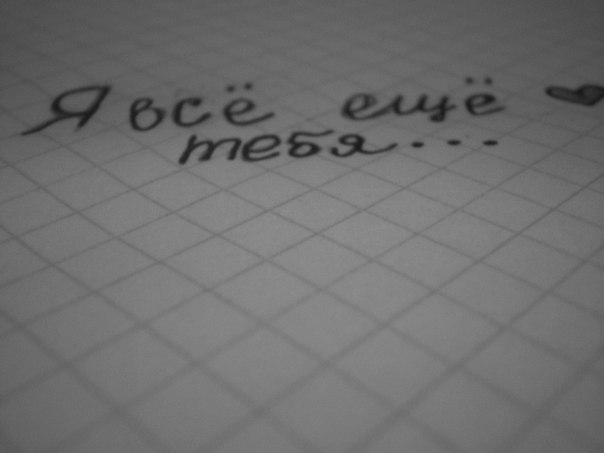 Я всё ещё ❤
тебя...